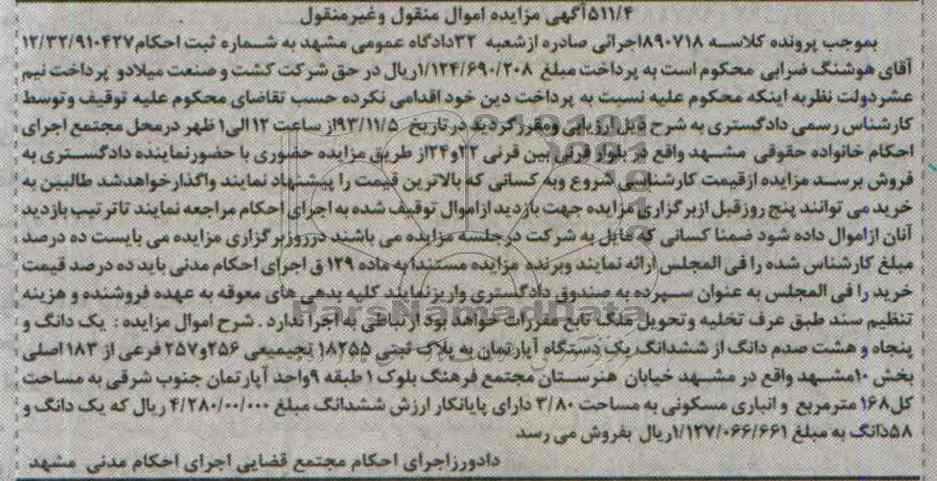 ۵۱۱/۴آگهی مزایده اموال منقول وغیرمنقول
بموجب پرونده کلاسه ۸۹۰۷۱۸اجرائی صادره ازشعبه ۳۲دادگاه عمومی مشهد به شماره ثبت احکام۱۲/۳۲/۹۱۰۴۲۷
آقای هوشنگ ضرابی محکوم است به پرداخت مبلغ ۱/۱۲۴/۶۹۰/۲۰۸ریال در حق شرکت کشت و صنعت میلادو پرداخت نیم
عشردولت نظربه اینکه محکوم علیه نسبت به پرداخت دین خود اقدامی نکرده حسب تقاضای محکوم علیه توقیف وتوسط
کارشناس رسمی دادگستری به شرح ذیل ارزیابی ومقررگردید درتاریخ ۹۳/۱۱/۵از ساعت ۱۲الی۱ ظهر درمحل مجتمع اجرای
احکام خانواده حقوقی مشهد واقع در بلوار قرنی بین قرنی ۲۲و۲۴از طریق مزایده حضوری با حضورنماینده دادگستری به
فروش برسد مزایده ازقیمت کارشناسی شروع وبه کسانی که بالاترین قیمت را پیشنهاد نمایند واگذارخواهدشد طالبین به
خرید می توانند پنج روزقبل ازبرگزاری مزایده جهت بازدید ازاموال توقیف شده به اجرای احکام مراجعه نمایند تاترتیب بازدید
آنان ازاموال داده شود ضمنا کسانی که مایل به شرکت درجلسه مزایده می باشند درروزبرگزاری مزایده می بایست ده درصد
مبلغ کارشناس شده را فی المجلس ارائه نمایند وبرنده مزایده مستندا به ماده ۱۲۹ ق اجرای احکام مدنی باید ده درصد قیمت
خرید را فی المجلس به عنوان سپرده به صندوق دادگستری واریزنمایند کلیه بدهی های معوقه به عهده فروشنده و هزینه
تنظیم سند طبق عرف تخلیه وتحویل ملک تابع مقررات خواهد بود ارتباطی به اجرا ندارد . شرح اموال مزایده : یک دانگ و
پنجاه و هشت صدم دانگ از ششدانگ یک دستگاه آپارتمان به پلاک ثبتی ۱۸۲۵۵ تجیمیعی ۲۵۶و۲۵۷ فرعی از ۱۸۳ اصلی
بخش ۱۰مشهد واقع در مشهد خیابان هنرستان مجتمع فرهنگ بلوک ۱ طبقه ۹واحد آپارتمان جنوب شرقی به مساحت
کل۱۶۸ مترمربع و انباری مسکونی به مساحت ۳/۸۰ دارای پایانکار ارزش ششدانگ مبلغ ۴/۲۸۰/۰۰/۰۰۰ ریال که یک دانگ و
۵۸دانگ به مبلغ ۱/۱۲۷/۰۶۶/۶۶۱ریال بفروش می رسد
دادورزاجرای احکام مجتمع قضایی اجرای احکام مدنی مشهد
ParsNamadData